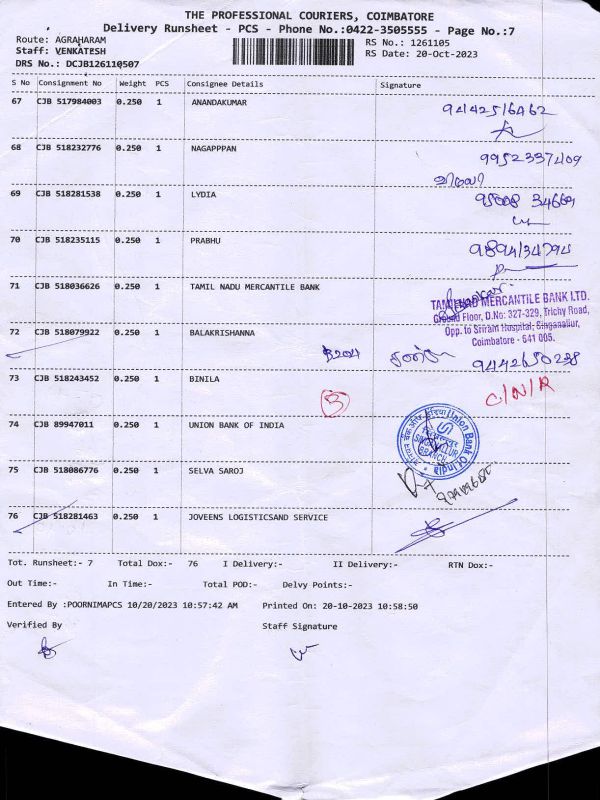 THE PROFESSIONAL COURIERS, COIMBATORE
Delivery Runsheet - PCS - Phone No.:0422-3505555 - Page No.:7
Route: AGRAHARAM
Staff: VENKATESH
DRS No.: DCJB126110507
RS No.: 1261105
RS Date: 20-Oct-2023
S No Consignment No Weight PCS Consignee Details Signature
67 CJB 517984003 0.250 1 ANANDAKUMAR 9442516462
68 CJB 518232776 0.250 1 NAGAPPPAN 9952337409
69 CJB 518281538 0.250 1 LYDIA
70 CJB 518235115 0.250 1 PRABHU 9894134794
71 CJB 518036626 0.250 1 TAMIL NADU MERCANTILE BANK
TAMILNAD MERCANTILE BANK LTD.
Ground Floor, D.No: 327-329, Trichy Road,
Opp. to Sriram Hospital, Singanallur,
Coimbatore - 641 005.
72 CJB 518079922 0.250 1 BALAKRISHANNA 9442650238
73 CJB 518243452 0.250 1 BINILA 3 C/N/R
74 CJB 89947011 0.250 1 UNION BANK OF INDIA
Union Bank Of India
SINGANALLUR
BRANCH
75 CJB 518086776 0.250 1 SELVA SAROJ
76 CJB 518281463 0.250 1 JOVEENS LOGISTICSAND SERVICE
Tot. Runsheet:- 7 Total Dox:- 76 I Delivery:- II Delivery:- RTN Dox:-
Out Time:- In Time:- Total POD:- Delvy Points:-
Entered By :POORNIMAPCS 10/20/2023 10:57:42 AM Printed On: 20-10-2023 10:58:50
Verified By Staff Signature